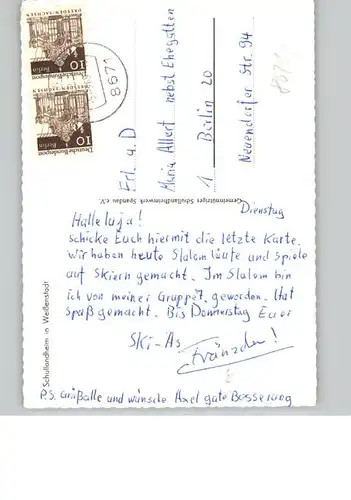 Dienstag
Halleluja!
schicke Euch hiermit die letzte Karte.
wir haben heute Slalomläufe und Spiele
auf Skiern gemacht. Im Slalom bin
ich von meiner Gruppe 7. geworden. Hat
Spaß gemacht. Bis Donnerstag Euer
Ski-As
Fränzchen!
P.S. Grüßalle und wünsche Axel gute Besserung
Schullandheim in Weißenstadt
Gemeinnütziger Schullandheimwerk Spandau e.V.
Erl. u. D
Maria Allert nebst Ehegatten
1 Berlin 20
Neuendorfer Str. 94
8671
DRESDEN-SACHSEN
Deutsche Bundespost
Berlin
10
DRESDEN-SACHSEN
Deutsche Bundespost
Berlin
10